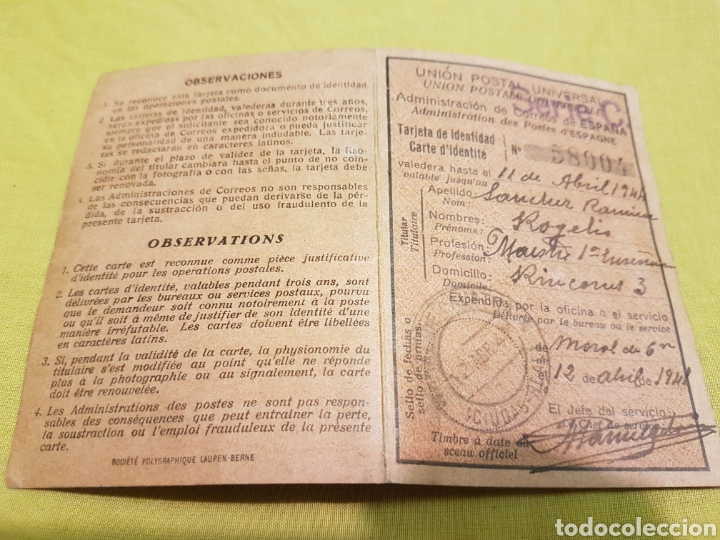 OBSERVACIONES
1. Se reconoce esta tarjeta como documento de identidad
en las operaciones postales.
2. Las tarjetas de identidad, valederas durante tres años,
serán expedidas por las oficinas o servicios de Correos,
siempre que el solicitante sea conocido notoriamente
en la oficina de Correos expedidora o pueda justificar
su personalidad de una manera indudable. Las tarje-
tas se redactarán en caracteres latinos.
3. Si durante el plazo de validez de la tarjeta, la fiso-
nomía del titular cambiara hasta el punto de no coin-
cidir con la fotografía o con las señas, la tarjeta debe
ser renovada.
4. Las Administraciones de Correos no son responsables
de las consecuencias que puedan derivarse de la pér-
dida, de la sustracción o del uso fraudulento de la
presente tarjeta.
OBSERVATIONS
1. Cette carte est reconnue comme pièce justificative
d'identité pour les opérations postales.
2. Les cartes d'identité, valables pendant trois ans, sont
délivrées par les bureaux ou services postaux, pourvu
que le demandeur soit connu notoirement à la poste
ou qu'il soit à même de justifier de son identité d'une
manière irréfutable. Les cartes doivent être libellées
en caractères latins.
3. Si, pendant la validité de la carte, la physionomie du
titulaire s'est modifiée au point qu'elle ne réponde
plus à la photographie ou au signalement, la carte
doit être renouvelée.
4. Les Administrations des postes ne sont pas respon-
sables des conséquences que peut entraîner la perte,
la soustraction ou l'emploi frauduleux de la présente
carte.
SOCIÉTÉ POLYGRAPHIQUE LAUPEN-BERNE
UNIÓN POSTAL UNIVERSAL
UNION POSTALE UNIVERSELLE
Administración de Correos de ESPAÑA
Administration des Postes d'ESPAGNE
Tarjeta de identidad
Carte d'identité
Nº 58004
valedera hasta el 11 de Abril 1944
valable jusqu'au
Apellido: Sanchez
Nom:
Nombres: Rogelio
Prénoms:
Titular
Titulaire
Profesión: Maestro 1ª
Profession:
Domicilio: 3
Domicile:
Expedida por la oficina o el servicio
Délivrée par le bureau ou le service
de Moral de
12 de abril de 1941
Sello de fechas o
sello de armas.
El Jefe del servicio:
Le Chef du service:
Timbre à date ou
sceau officiel
todocoleccion